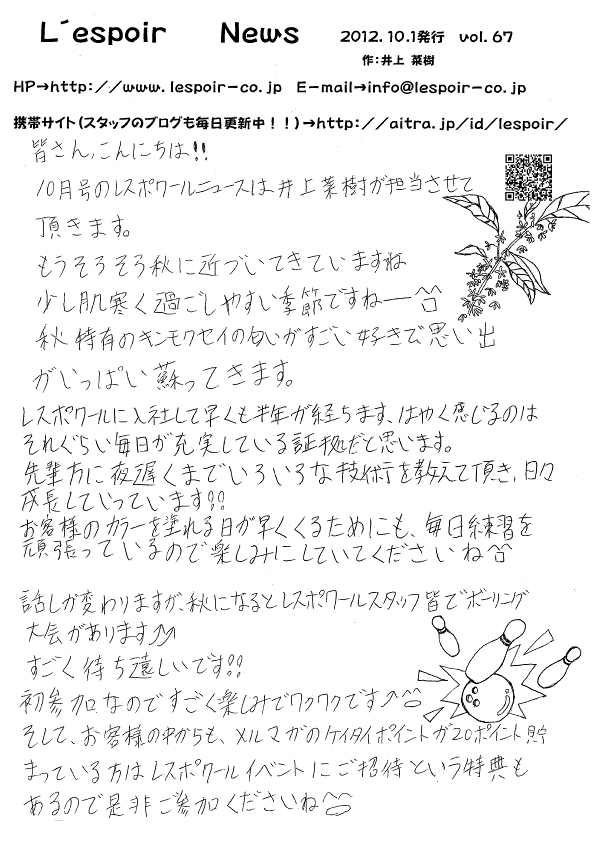 L´espoir News 2012.10.1発行 vol.67
作:井上 菜樹
HP→http://www.lespoir-co.jp E-mail→info@lespoir-co.jp
携帯サイト(スタッフのブログも毎日更新中!!)→http://aitra.jp/id/lespoir/
皆さん,こんにちは!!
10月号のレスポワールニュースは井上菜樹が担当させて
頂きます。
もうそろそろ秋に近づいてきていますね
少し肌寒く過ごしやすい季節ですねー
秋特有のキンモクセイの匂いがすごい好きで思い出
がいっぱい蘇ってきます。
レスポワールに入社して早くも半年が経ちます、はやく感じるのは
それぐらい毎日が充実している証拠だと思います。
先輩方に夜遅くまでいろいろな技術を教えて頂き,日々
成長していっています!!
お客様のカラーを塗れる日が早くくるためにも、毎日練習を
頑張っているので楽しみにしていてくださいね
話しが変わりますが、秋になるとレスポワールスタッフ皆でボーリング
大会があります♪♪
すごく待ち遠しいです!!
初参加なのですごく楽しみでワクワクです♪
そして、お客様の中からも、メルマガのケイタイポイントが20ポイント貯
まっている方はレスポワールイベントにご招待という特典も
あるので是非ご参加くださいね